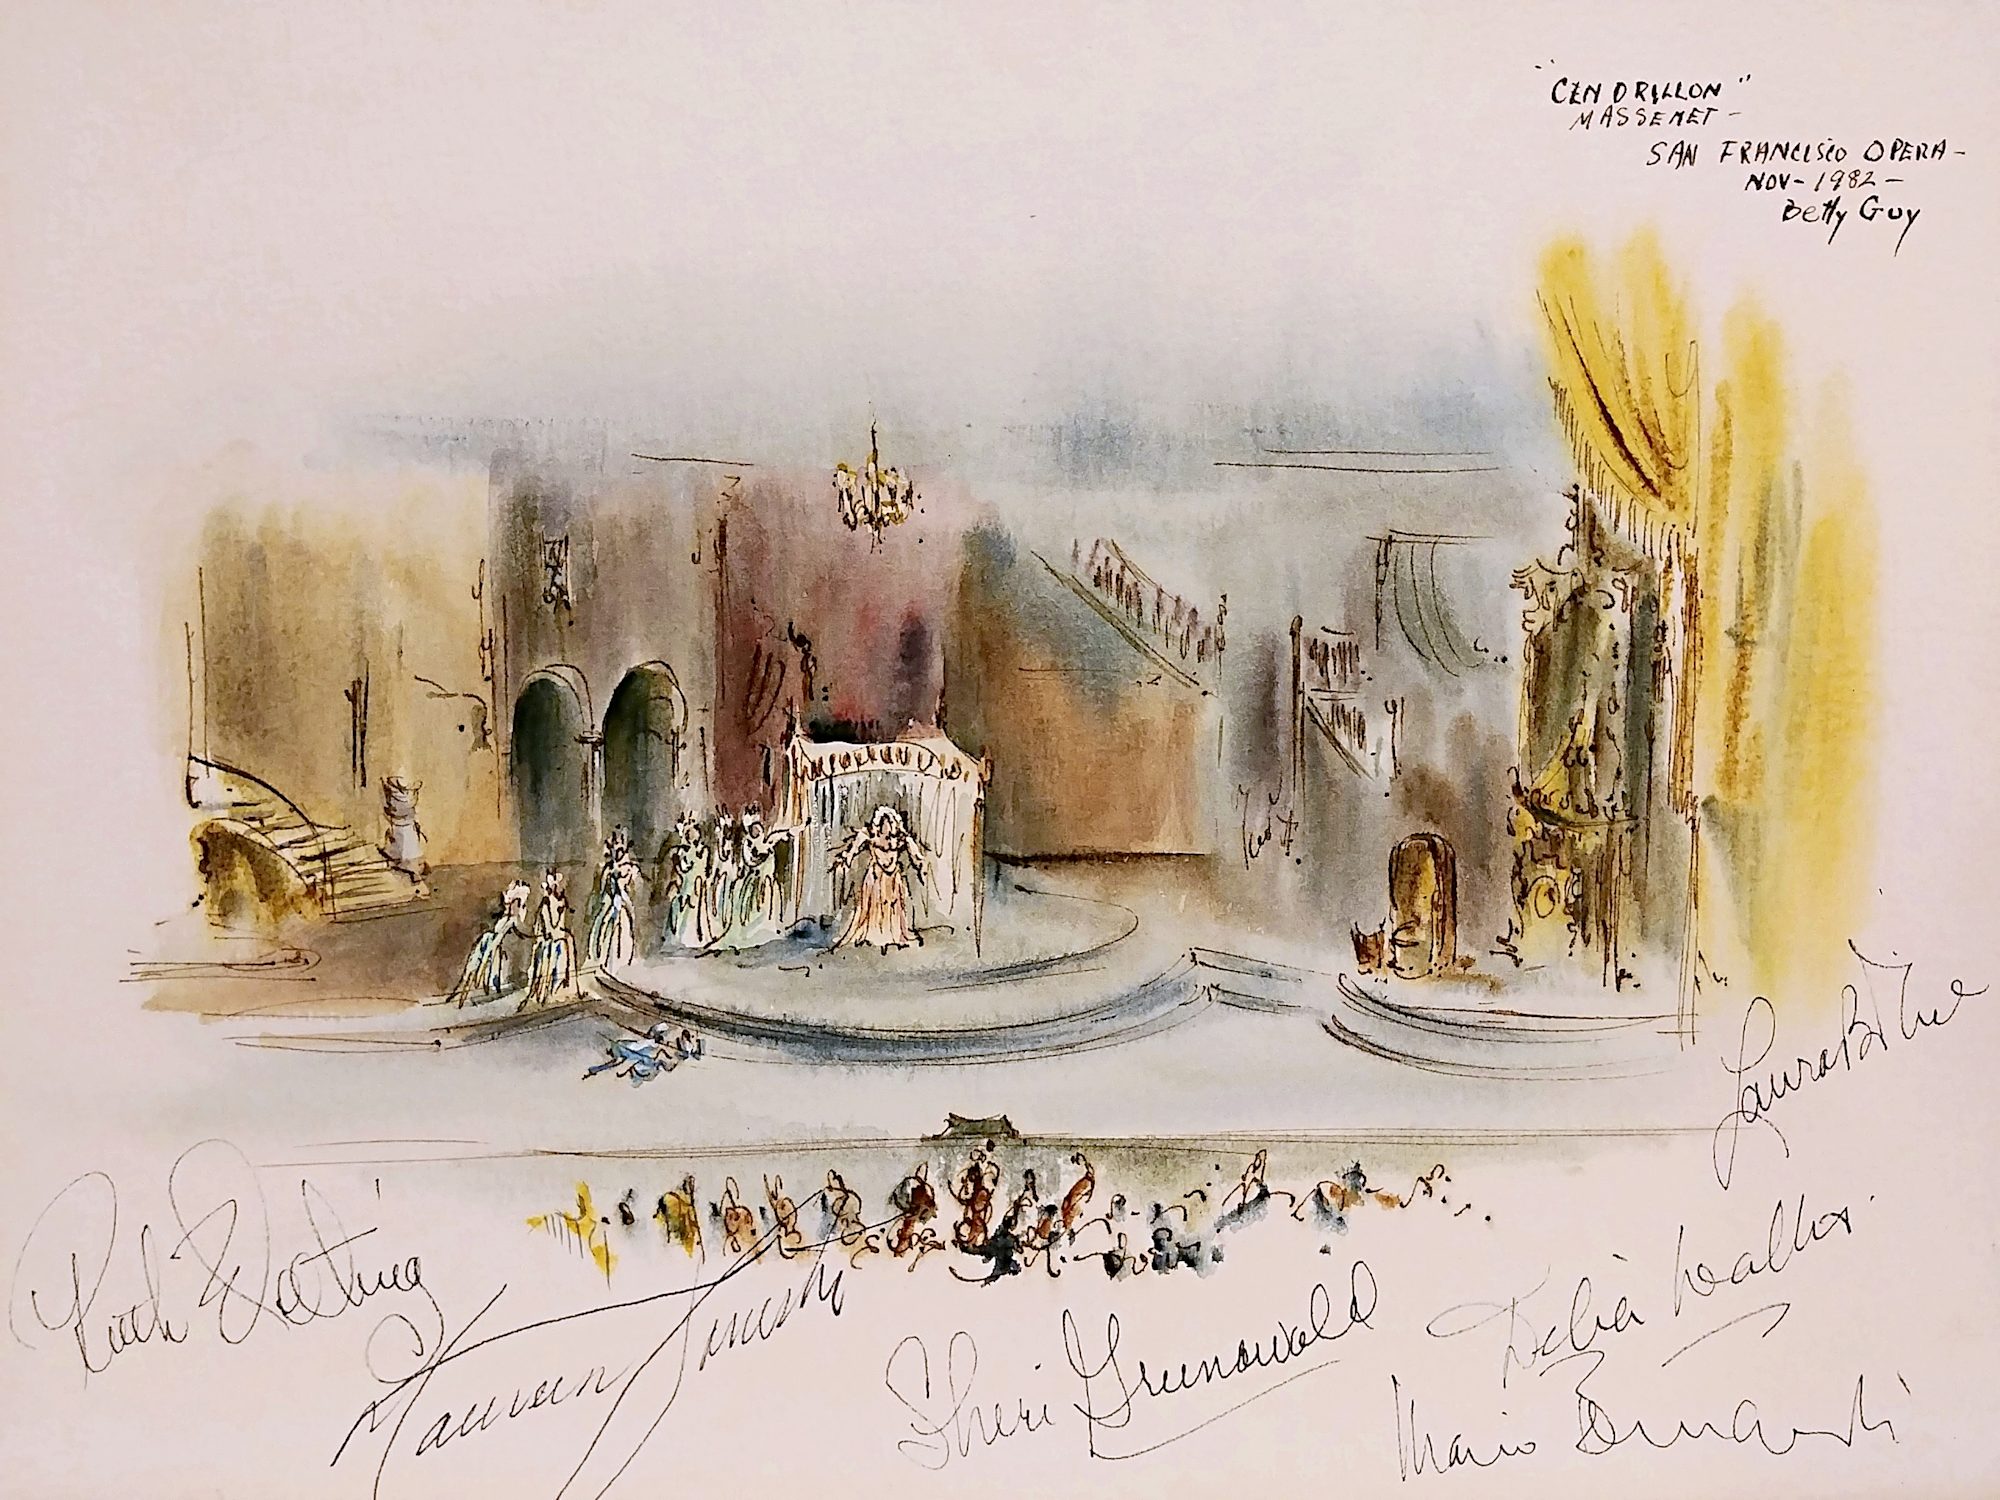 "CENDRILLON"
MASSENET -
SAN FRANCISCO OPERA -
NOV - 1982 -
Betty Guy
Laura B
Ruth Welting
Maureen Forrester
Sheri Greenawald
Delia Wallis
Mario Bernardi